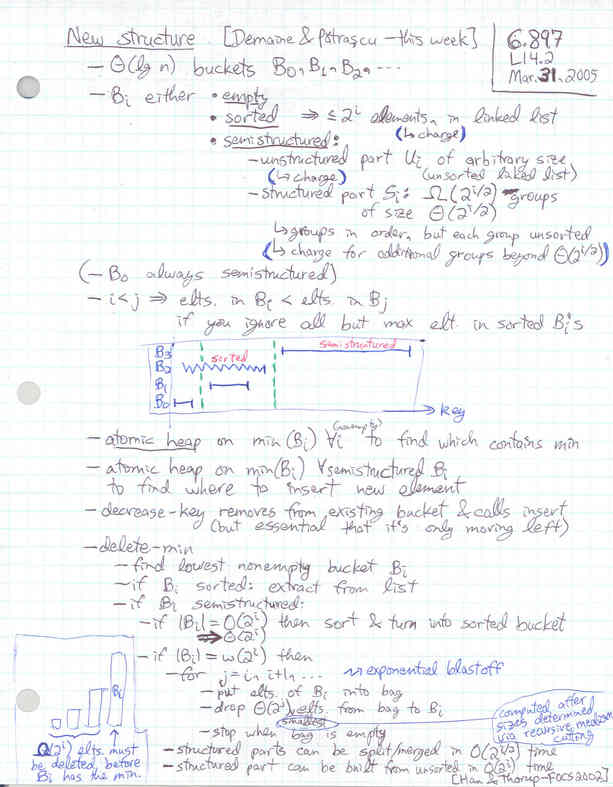 New structure [Demaine & Pătraşcu - this week]
6.897
L14.2
Mar. 31, 2005
- Θ(lg n) buckets B₀, B₁, B₂, ...
- Bᵢ either • empty
• sorted ⇒ ≤ 2ⁱ elements, in linked list
(↳ charge)
• semistructured:
- unstructured part Uᵢ of arbitrary size
(↳ charge) (unsorted linked list)
- structured part Sᵢ: Ω(2^{i/2}) groups
of size Θ(2^{i/2})
↳ groups in order, but each group unsorted
(↳ charge for additional groups beyond Θ(2^{i/2}))
(- B₀ always semistructured)
- i<j ⇒ elts. in Bᵢ < elts. in Bⱼ
if you ignore all but max elt. in sorted Bᵢ's
B₃ semistructured
B₂ sorted
B₁
B₀
key
- atomic heap on min(Bᵢ) ∀i to find which contains min
- atomic heap on min(Bᵢ) ∀semistructured Bᵢ
to find where to insert new element
- decrease-key removes from existing bucket & calls insert
(but essential that it's only moving left)
- delete-min
- find lowest nonempty bucket Bᵢ
- if Bᵢ sorted: extract from list
- if Bᵢ semistructured:
- if |Bᵢ| = O(2ⁱ) then sort & turn into sorted bucket
⇒ Θ(2ⁱ)
- if |Bᵢ| = ω(2ⁱ) then
- for j = i, i+1, ... exponential blastoff
- put elts. of Bᵢ into bag
- drop Θ(2ⁱ) elts. from bag to Bᵢ
smallest
computed after
sizes determined
via recursive median
cutting
- stop when bag is empty
- structured parts can be split/merged in O(2^{i/2}) time
- structured part can be built from unsorted in O(2ⁱ) time
[Han & Thorup - FOCS 2002]
Bᵢ
Ω(2ⁱ) elts. must
be deleted before
Bᵢ has the min.